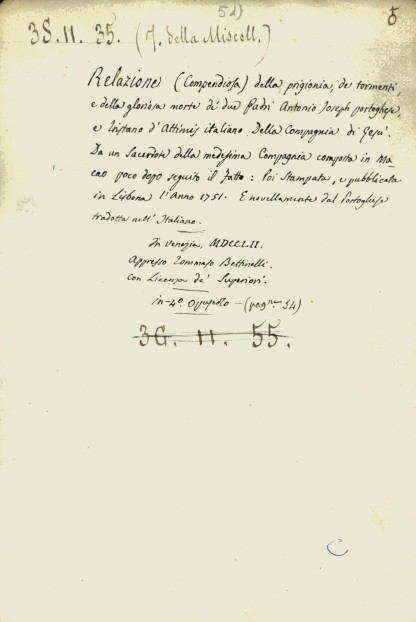 51)
5
38. 11. 35. (7. della Miscell.)
Relazione (Compendiosa) della prigionia, de tormenti,
e della gloriosa morte de' due Padri Antonio Joseph portoghese,
e Tristano d'Attimis italiano. Della Compagnia di Gesu'.
Da un Sacerdote della medesima Compagnia composta in Ma-
cao poco dopo seguito il fatto: Poi Stampata, e pubblicata
in Lisbona l'Anno 1751. E novellamente dal Portoghese
tradotta nell' Italiano.
In Venezia, MDCCLII.
Appresso Tommaso Bettinelli.
con Licenza de' Superiori.
in-4º Opuscolo - (pagne 34)
36. 11. 55.